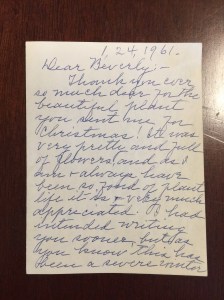 1, 24, 1961.
Dear Beverly:-
Thank you ever
so much dear for the
beautiful plant
you sent me for
Christmas! It was
very pretty and full
of flowers, and as I
am & always have
been so fond of plant
life it is & very much
appreciated. I had
intended writing
you sooner, but as
you know this has
been a severe winter